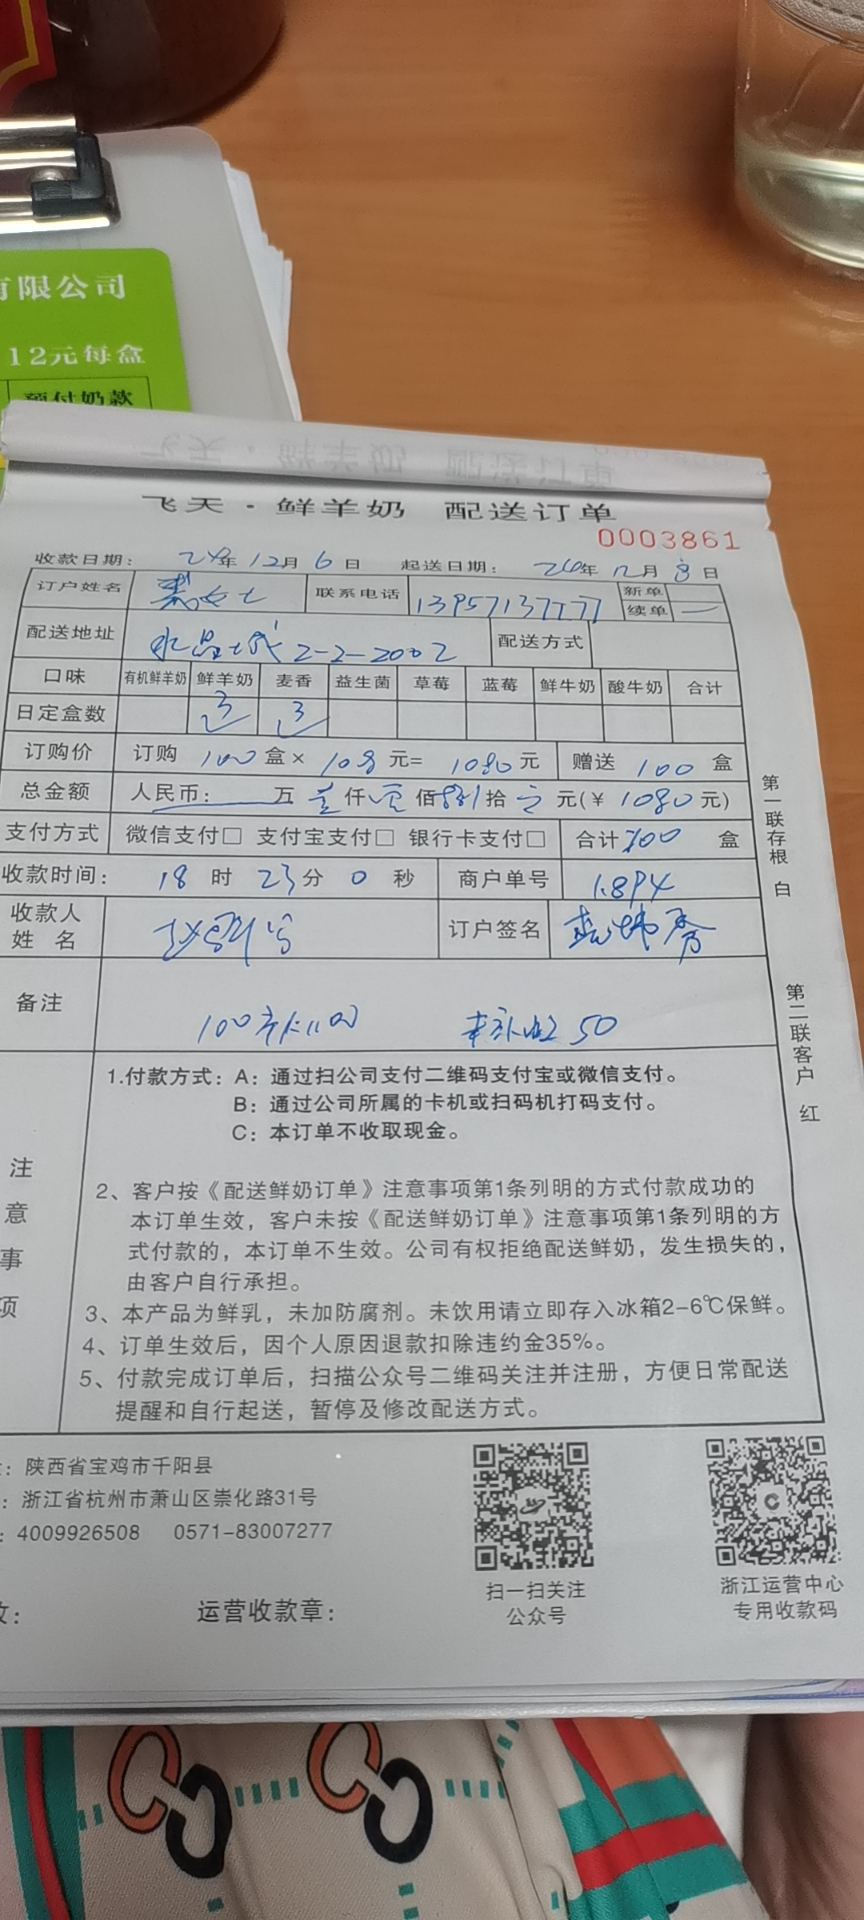 有限公司
12元每盒
预付奶款
飞天·鲜羊奶 配送订单
0003861
收款日期: 24年12月6日 起送日期: 24年12月8日
订户姓名 女士 联系电话 13957137777 新单 续单
配送地址 水晶城2-2-2002 配送方式
口味 有机鲜羊奶 鲜羊奶 麦香 益生菌 草莓 蓝莓 鲜牛奶 酸牛奶 合计
日定盒数 3 3
订购价 订购 100 盒× 108 元= 1080 元 赠送 100 盒
总金额 人民币: 万 壹 仟 零 佰 捌 拾 元(¥ 1080 元)
支付方式 微信支付□ 支付宝支付□ 银行卡支付□ 合计 盒
收款时间: 18 时 23 分 0 秒 商户单号 1894
收款人姓名 订户签名
备注 100 50
第一联存根 白
第二联客户 红
注意事项
1.付款方式: A: 通过扫公司支付二维码支付宝或微信支付。
B: 通过公司所属的卡机或扫码机打码支付。
C: 本订单不收取现金。
2、客户按《配送鲜奶订单》注意事项第1条列明的方式付款成功的
本订单生效,客户未按《配送鲜奶订单》注意事项第1条列明的方
式付款的,本订单不生效。公司有权拒绝配送鲜奶,发生损失的,
由客户自行承担。
3、本产品为鲜乳,未加防腐剂。未饮用请立即存入冰箱2-6℃保鲜。
4、订单生效后,因个人原因退款扣除违约金35%。
5、付款完成订单后,扫描公众号二维码关注并注册,方便日常配送
提醒和自行起送,暂停及修改配送方式。
: 陕西省宝鸡市千阳县
: 浙江省杭州市萧山区崇化路31号
: 4009926508 0571-83007277
运营收款章:
扫一扫关注
公众号
浙江运营中心
专用收款码